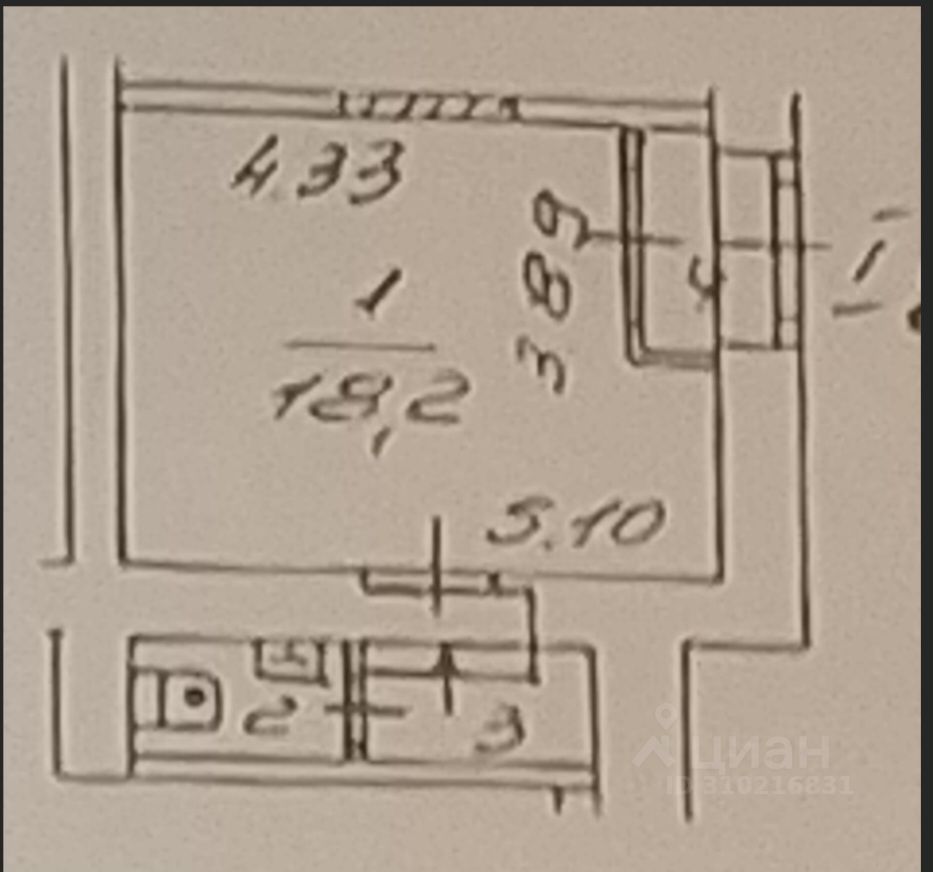 4.33
3 89
4
1
18,2
5.10
2
3
циан
ID 310216831